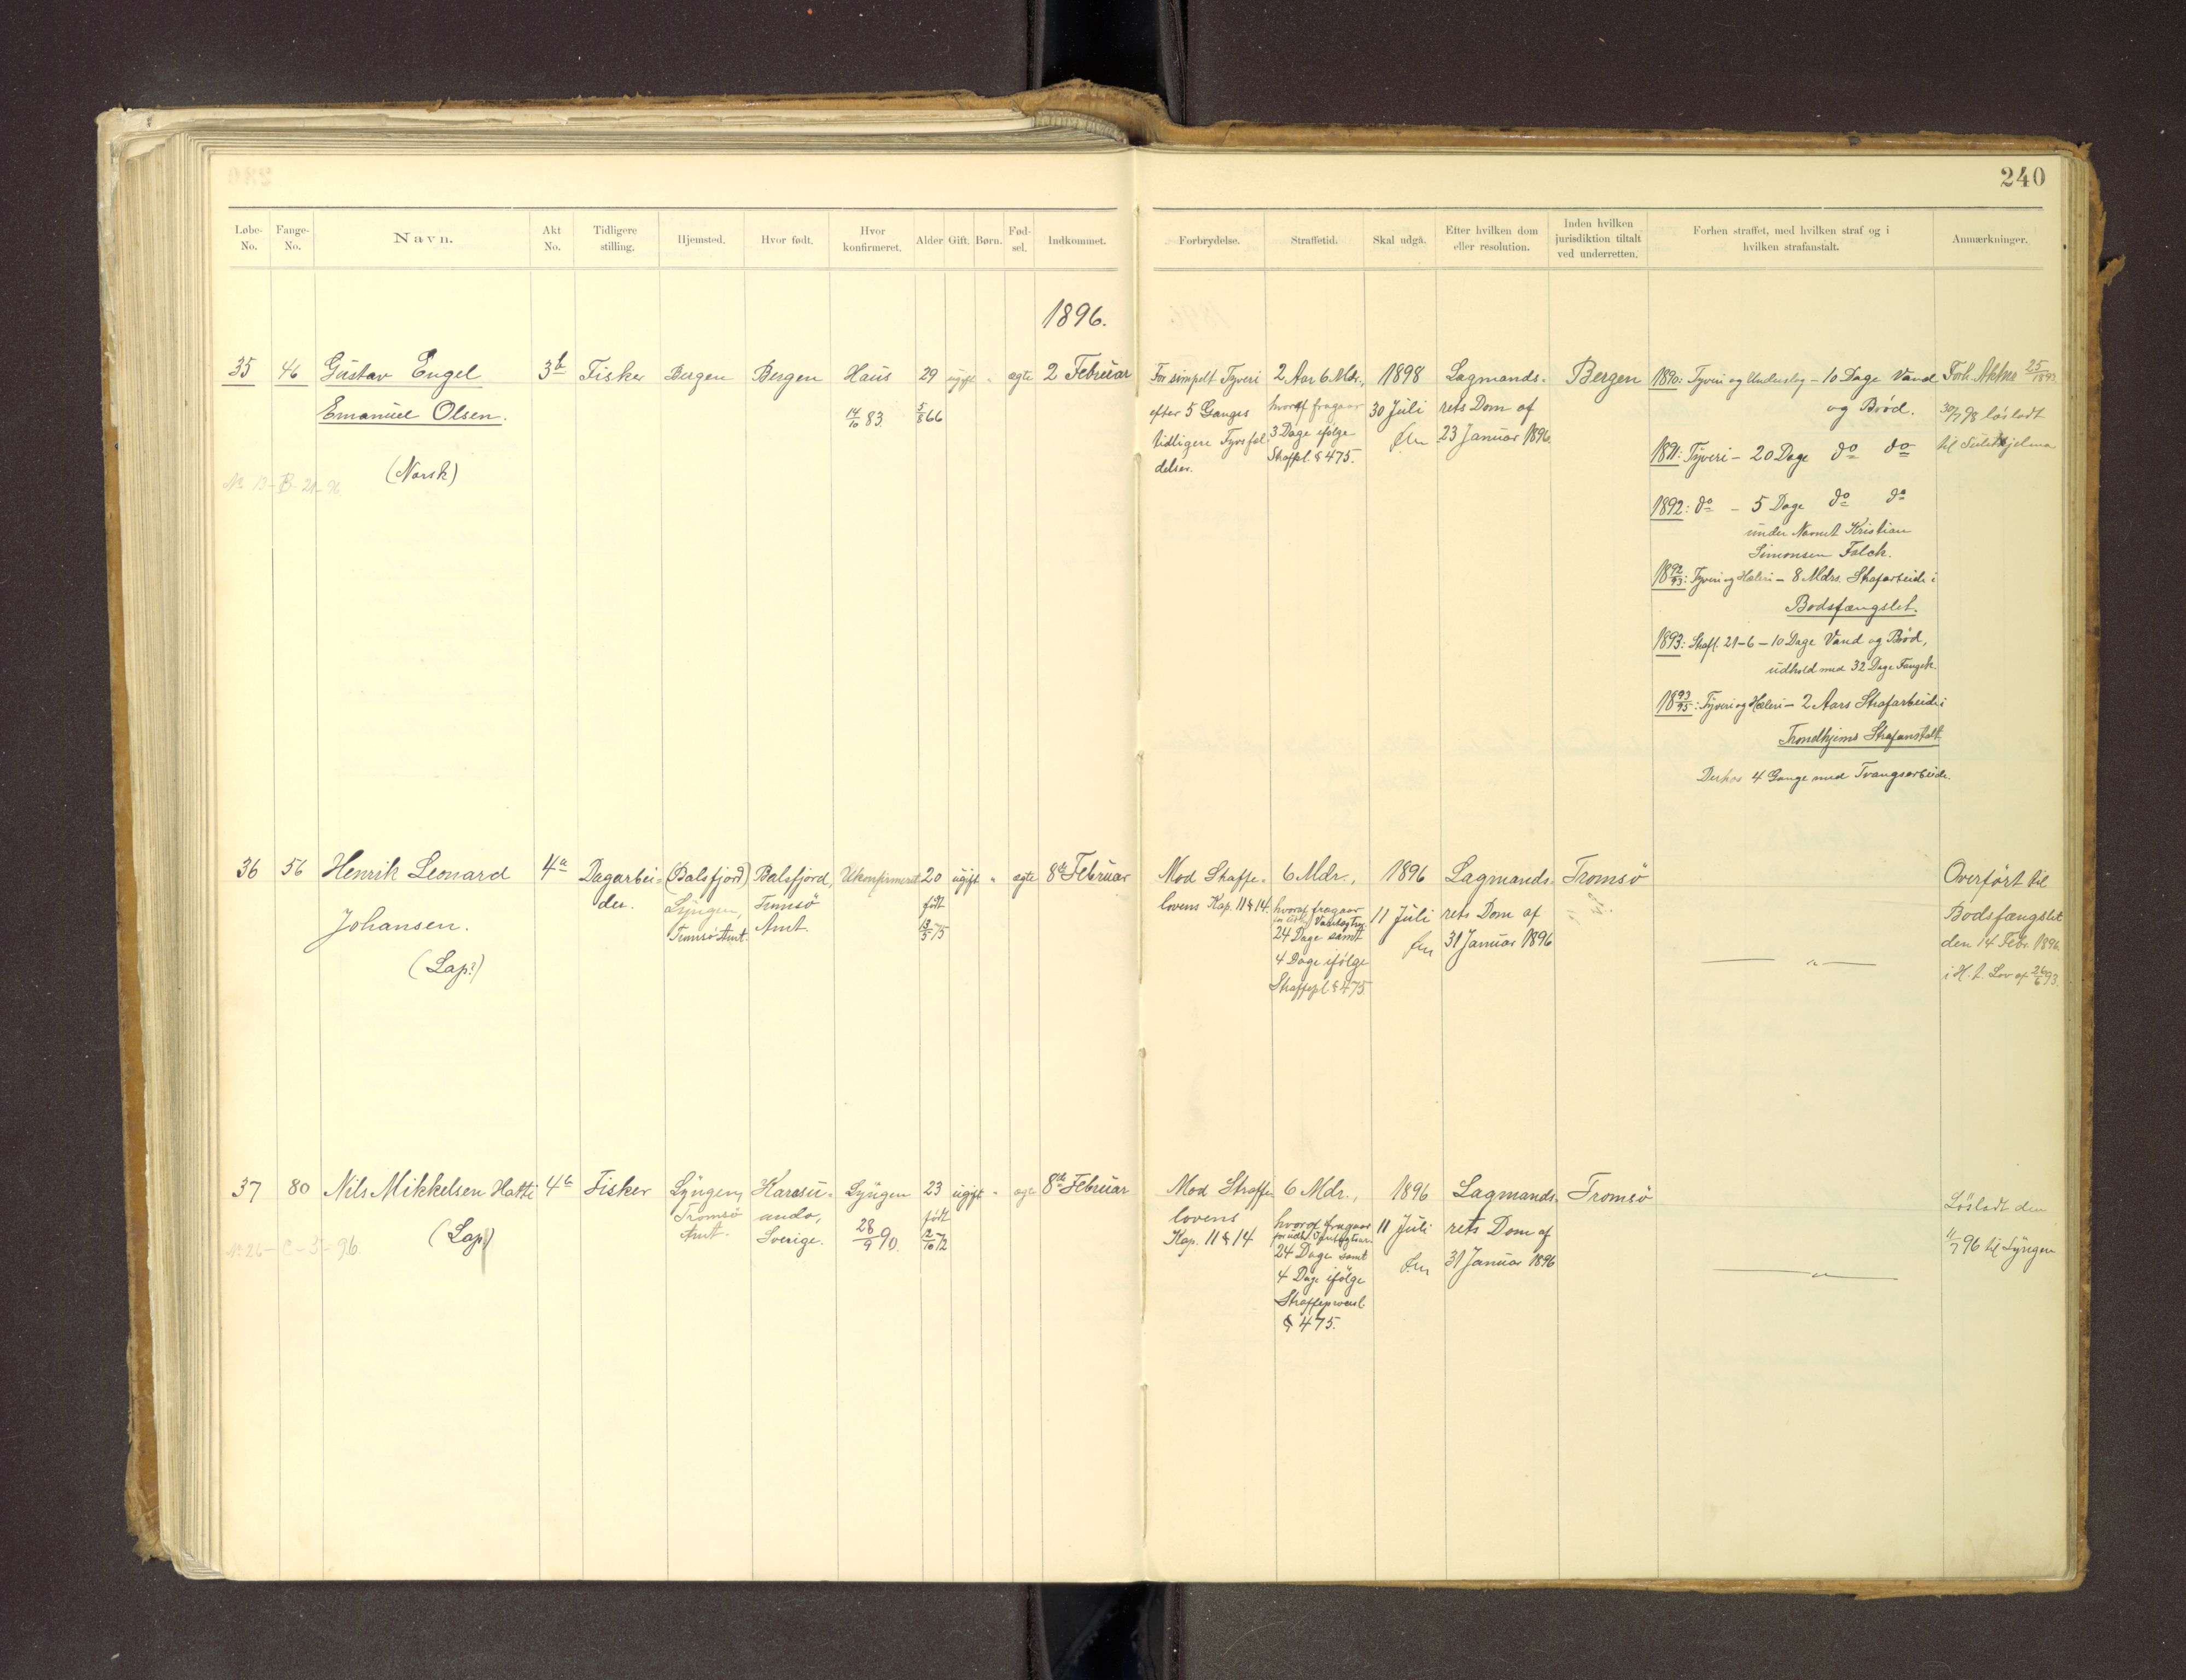 240
Løbe-No.
Fange-No.
Navn.
Akt No.
Tidligere stilling.
Hjemsted.
Hvor født.
Hvor konfirmeret.
Alder
Gift.
Børn.
Fød-sel.
Indkommet.
Forbrydelse.
Straffetid.
Skal udgå.
Efter hvilken dom eller resolution.
Inden hvilken jurisdiktion tiltalt ved underretten.
Forhen straffet, med hvilken straf og i hvilken strafanstalt.
Anmærkninger.
1896.
35
46
Gustav Engel
Emanuel Olsen.
(Norsk)
No 13-B-21-96
3b
Fisker
Bergen
Bergen
Haus
14/10 83.
29
5/8 66
ugift
"
ægte
2 Februar
For simpelt Tyveri
efter 5 Ganges
tidligere Tyvsfæl
delser.
2 Aar 6 Mdr.,
hvoraf fragaar
3 Dage ifølge
Straffpl. § 475.
1898
30 Juli
Lagmands-
rets Dom af
23 Januar 1896.
Bergen
1890: Tyveri og Underslag – 10 Dage Vand
og Brød.
1891: Tyveri – 20 Dage do do
1892: do – 5 Dage do do
under Navnet Kristian
Simonsen Falck.
1892/93: Tyveri og Hæleri – 8 Mdrs. Strafarbeide i
Bodsfængslet.
1893: Strafl. 21-6 – 10 Dage Vand og Brød,
udholdt med 32 Dage Fængsl.
1893/95: Tyveri og Hæleri – 2 Aars Strafarbeide i
Trondhjems Strafanstalt
Derhos 4 Gange med Tvangsarbeide.
Forh. Aktno 25/1893
30/7 98 løsladt
til Sulitjelma
36
56
Henrik Leonard
Johansen.
(Lap?)
4a
Dagarbei-
der.
(Balsfjord)
Lyngen,
Tromsø Amt.
Balsfjord,
Tromsø
Amt.
Ukonfirmeret
20
født
13/5 75
ugift
"
ægte
8de Februar
Mod Straffe-
lovens Kap. 11 & 14.
6 Mdr.,
hvoraf fragaar
Varetægtsf.
24 Dage samt
4 Dage ifølge
Straffepl § 475
1896
11 Juli
Lagmands-
rets Dom af
31 Januar 1896
Tromsø
"
Overført til
Bodsfængslet
den 14 Febr. 1896
i H. t. Lov af 26/6 93.
37
80
Nils Mikkelsen Hatti
(Lap)
No 26-C-3-96
4b
Fisker
Lyngen,
Tromsø
Amt.
Karesu-
ando,
Sverige.
Lyngen
28/9 90.
23
født
12/10 72
ugift
"
ægte
8de Februar
Mod Straffe
lovens
Kap. 11 & 14
6 Mdr.,
hvoraf fragaar
for udst. Varetægtsar.
24 Dage samt
4 Dage ifølge
Straffeprocesl.
§ 475.
1896
11 Juli
Lagmands-
rets Dom af
31 Januar 1896
Tromsø
"
Løsladt den
11/7 96 til Lyngen